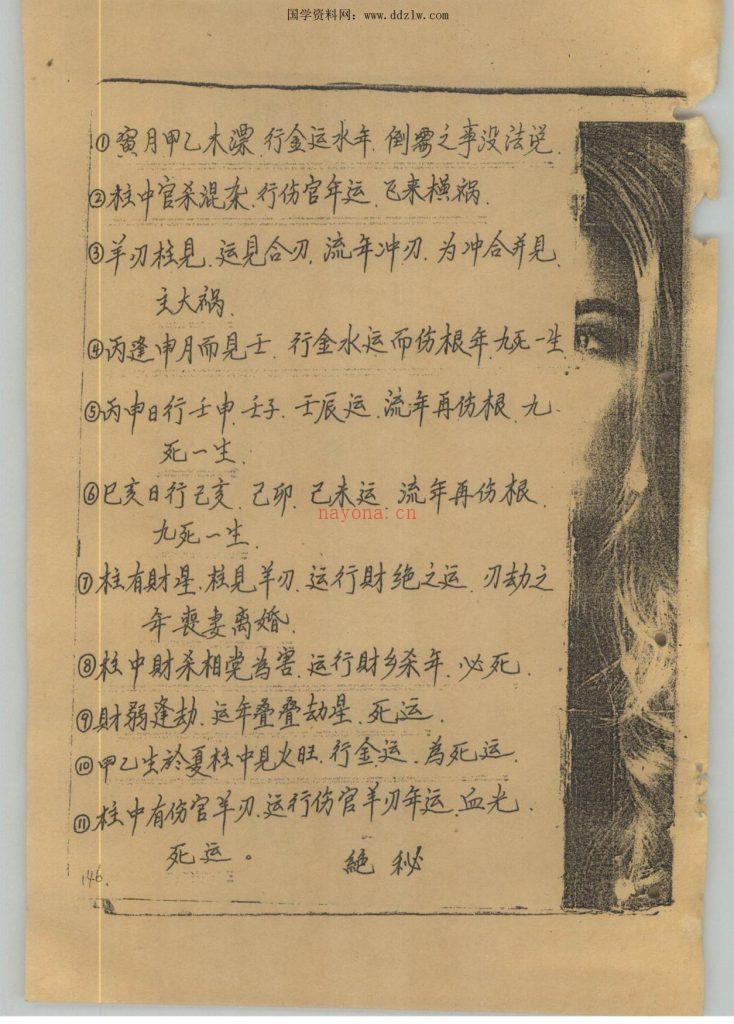 国学资料网：www.ddzlw.com
①寅月甲乙木漂.行金运水年.倒霉之事没法说.
②柱中官杀混杂.行伤官年运.飞来横祸.
③羊刃柱見.运見合刃.流年冲刃.为冲合并見.
主大祸.
④丙逢申月而見壬.行金水运而伤根年.九死一生.
⑤丙申日行壬申.壬子.壬辰运.流年再伤根.九
死一生.
⑥巳亥日行己亥.己卯.己未运.流年再伤根.
nayona.cn
九死一生.
⑦柱有財星.柱見羊刃.运行財绝之运.刃劫之
年丧妻离婚.
⑧柱中財杀相党為害.运行財乡杀年.必死.
⑨財弱逢劫.运年叠叠劫星.死运.
⑩甲乙生於夏柱中見火旺.行金运.為死运.
⑪柱中有伤官羊刃.运行伤官羊刃年运.血光.
死运。 絕秘
146.